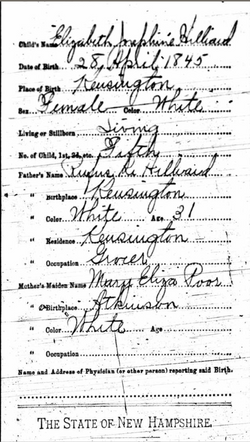 Child's Name Elizabeth Josephine Hilliard
Date of Birth 28, April 1845
Place of Birth Kensington
Sex Female Color White
Living or Stillborn Living
No. of Child, 1st, 2d, etc. Fifth
Father's Name Rufus K. Hilliard
" Birthplace Kensington
" Color White Age 31
" Residence Kensington
" Occupation Grocer
Mother's Maiden Name Mary Eliza Poor
" Birthplace Atkinson
" Color White Age
" Occupation
Name and Address of Physician (or other person) reporting said Birth.
THE STATE OF NEW HAMPSHIRE.